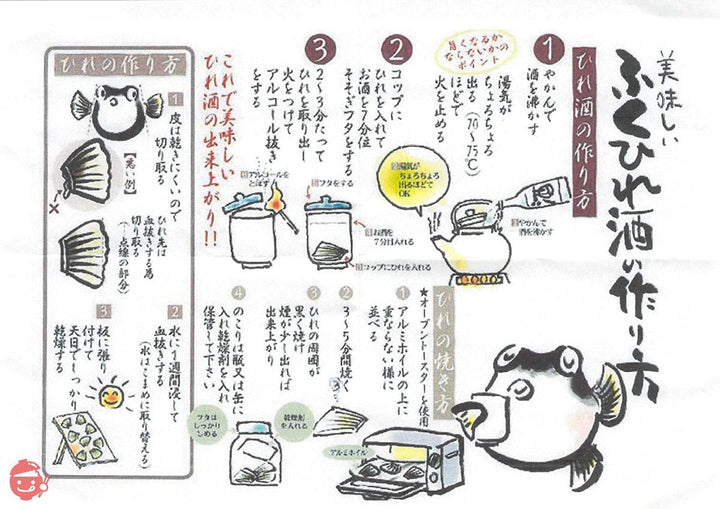 美味しい
ふくひれ酒の作り方
ひれ酒の作り方
1
やかんで
酒を沸かす
旨くなるか
ならないかの
ポイント
湯気が
ちょろちょろ
出る(70~75℃)
ほどで
火を止める
2
コップに
ひれを入れて
お酒を7分位
そそぎフタをする
3
2~3分たって
ひれを取り出し
火をつけて
アルコール抜き
をする
これで美味しい
ひれ酒の出来上がり!!
やかんで
酒を沸かす
湯気が
ちょろちょろ
出るほどで
OK
コップにひれを入れる
お酒を
7分目入れる
フタをする
アルコールを
とばす
ひれの焼き方
★オーブントースターを使用
①
アルミホイルの上に
重ならない様に
並べる
②
3~5分間焼く
③
ひれの周囲が
黒く焼け
煙が少し出れば
出来上がり
④
のこりは瓶又は缶に
入れ乾燥剤を入れ
保管して下さい
アルミホイル
乾燥剤
を入れる
フタは
しっかり
しめる
ひれの作り方
1
皮は乾きにくいので
切り取る
【悪い例】
×
ひれ先は
血抜きする為
切り取る
(…点線の部分)
2
水に1週間浸して
血抜きする
(水はこまめに取り替える)
3
板に張り
付けて
天日でしっかり
乾燥する